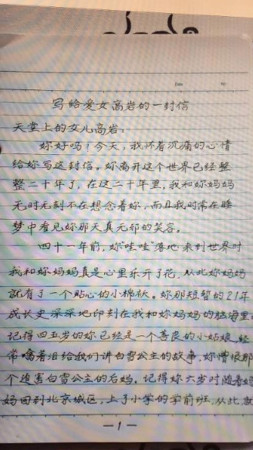 写给爱女高岩的一封信
天堂上的女儿高岩:
妳好吗?今天,我怀着沉痛的心情
给妳写这封信。妳离开这个世界已经整
整二十年了,在这二十年里,我和妳妈妈
无时无刻不在想念着妳,而且我时常在睡
梦中看见妳那天真无邪的笑容。
四十一年前,妳"哇哇"落地来到世界时
我和妳妈妈真是心里乐开了花,从此妳妈妈
就有了一个贴心的小棉袄。妳那短暂的21年
成长史深深地印刻在我和妳妈妈的脑海里
记得四五岁的妳已经是一个善良的小姑娘,经
常噙着泪给我们讲白雪公主的故事,妳憎恨那
个迫害白雪公主的后妈。记得妳六岁时随着妈
妈回到北京城区,上了小学的学前班,从此就
—1—